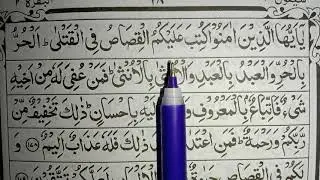 يٰۤاَيُّهَا الَّذِيْنَ اٰمَنُوْا كُتِبَ عَلَيْكُمُ الْقِصَاصُ فِي الْقَتْلٰى ؕ اَلْحُرُّ
بِالْحُرِّ وَالْعَبْدُ بِالْعَبْدِ وَالْاُنْثٰى بِالْاُنْثٰى ؕ فَمَنْ عُفِيَ لَهٗ مِنْ اَخِيْهِ
شَيْءٌ فَاتِّبَاعٌ ۢ بِالْمَعْرُوْفِ اِلَيْهِ بِاِحْسَانٍ ؕ ذٰلِكَ تَخْفِيْفٌ مِّنْ
رَّبِّكُمْ وَرَحْمَةٌ ؕ فَمَنِ اعْتَدٰى ذٰلِكَ فَلَهٗ عَذَابٌ اَلِيْمٌ ﴿۱۷۸﴾ وَ
لَكُمْ فِي الْقِصَاصِ